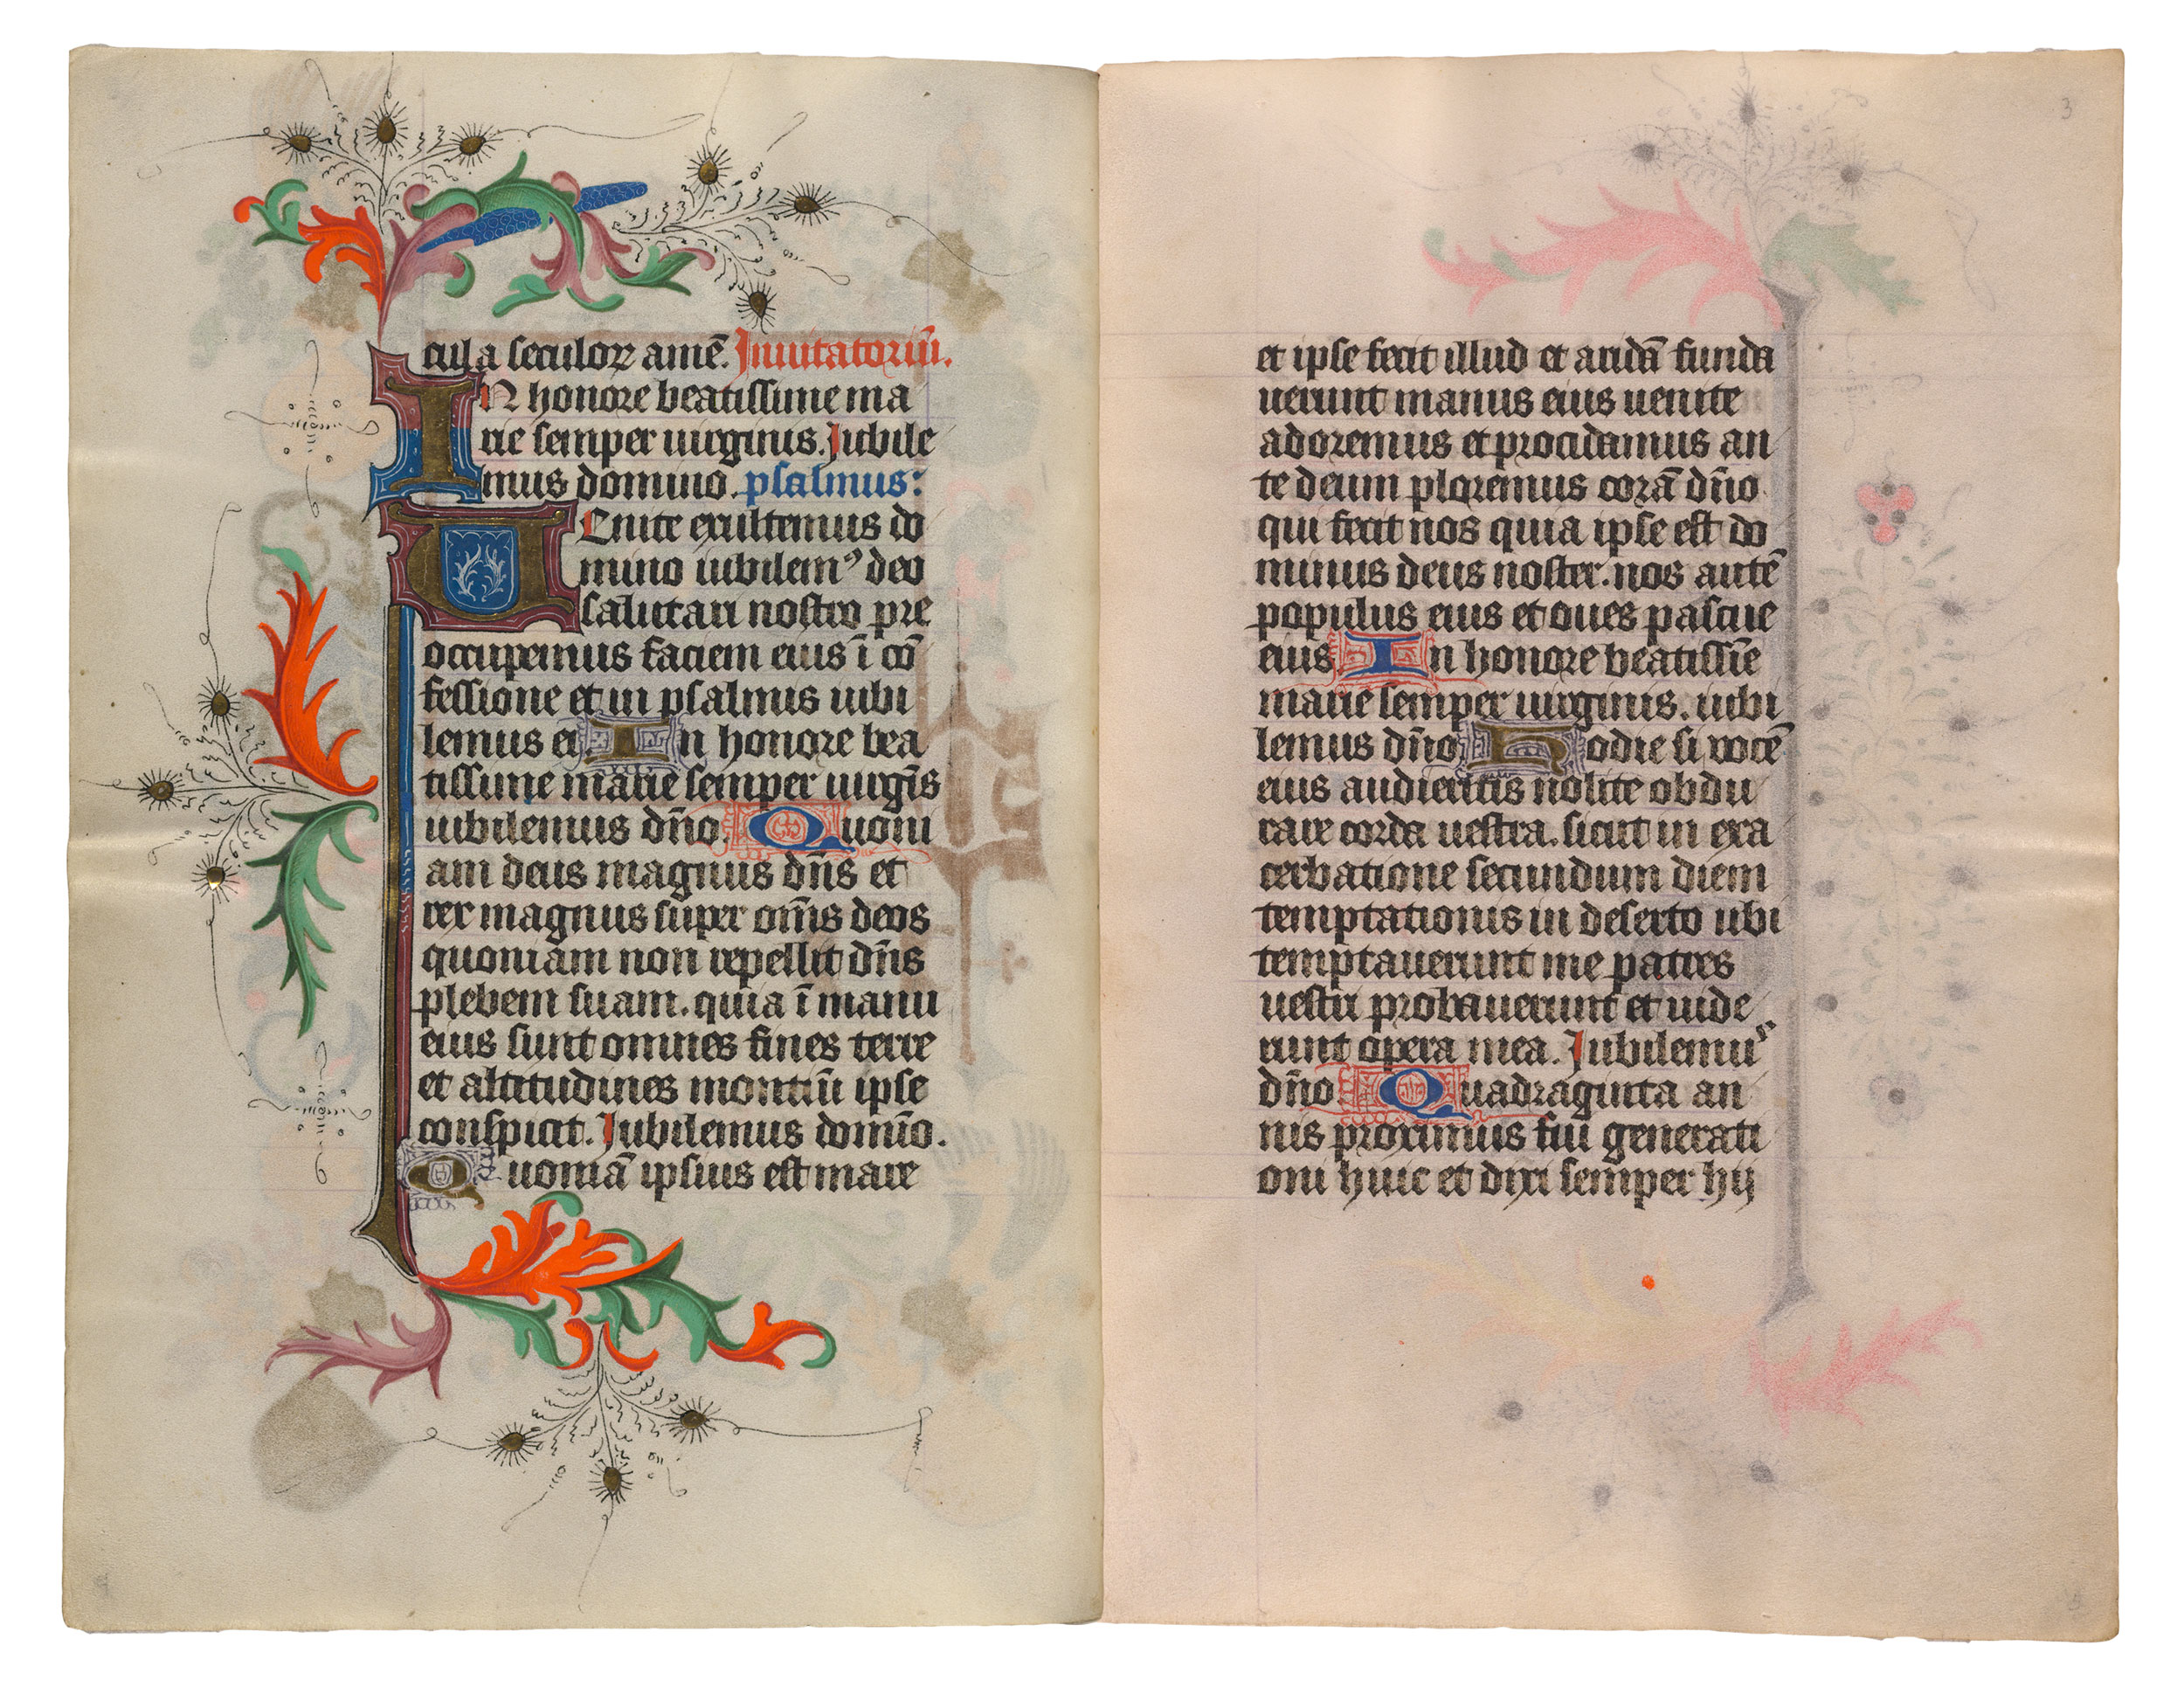 cula seculoꝝ amē. Inuitatoriū.
IN honore beatissime ma
rie semper uirginis. Iubile
mus domino. psalmus:
UEnite exultemus do
mino iubilemꝰ deo
salutari nostro pre
occupemus faciem eius ī cō
fessione et in psalmis iubi
lemus ei In honore bea
tissime marie semper uirgīs
iubilemus dn̄o. Quoni
am deus magnus dn̄s et
rex magnus super om̄s deos
quoniam non repellit dn̄s
plebem suam. quia ī manu
eius sunt omnes fines terre
et altitudines montiū ipse
conspicit. Iubilemus domīo.
Quoniā ipsius est mare
3
et ipse fecit illud et aridā funda
uerunt manus eius uenite
adoremus et procidamus an
te deum ploremus corā dn̄o
qui fecit nos quia ipse est do
minus deus noster. nos autē
populus eius et oues pascue
eius In honore beatissīe
marie semper uirginis. iubi
lemus dn̄o. Hodie si vocē
eius audieritis nolite obdu
rare corda uestra. sicut in exa
cerbatione secundum diem
temptationis in deserto ubi
temptauerunt me patres
uestri probauerunt et uide
runt opera mea. Iubilemus
dn̄o Quadraginta an
nis proximus fui generati
oni huic et dixi semper hij